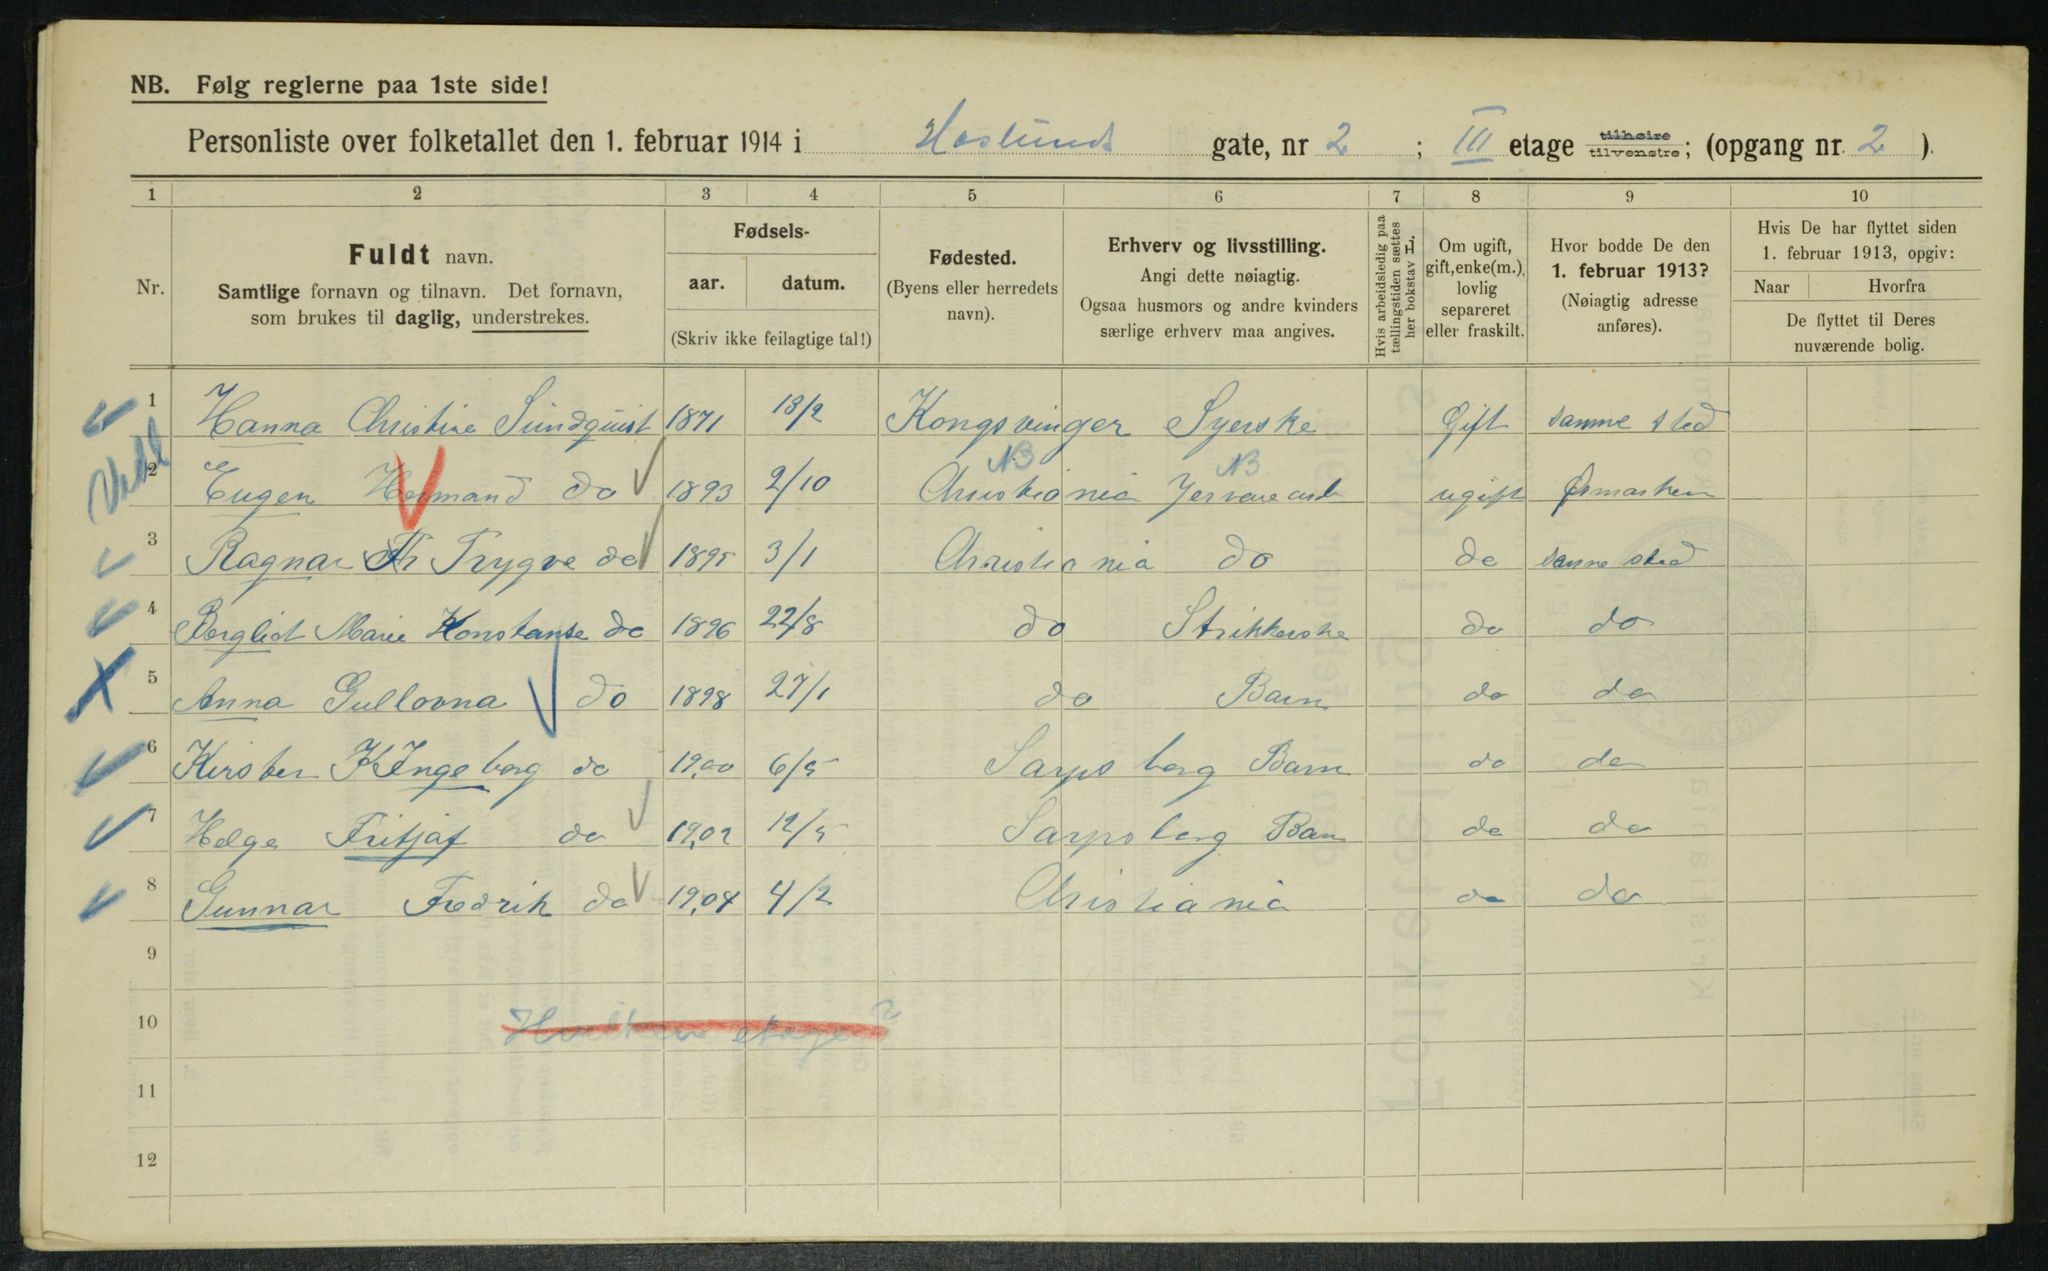 NB. Følg reglerne paa 1ste side!
Personliste over folketallet den 1. februar 1914 i Haslunds gate, nr 2 ; III etage tilhøire tilvenstre; (opgang nr. 2 ).
1 2 3 4 5 6 7 8 9 10
Nr.
Fuldt navn.
Samtlige fornavn og tilnavn. Det fornavn,
som brukes til daglig, understrekes.
Fødsels-
aar. datum.
(Skriv ikke feilagtige tal!)
Fødested.
(Byens eller herredets
navn).
Erhverv og livsstilling.
Angi dette nøiagtig.
Ogsaa husmors og andre kvinders
særlige erhverv maa angives.
Hvis arbeidsledig paa
tællingstiden sættes
her bokstav L
Om ugift,
gift, enke(m.),
lovlig
separeret
eller fraskilt.
Hvor bodde De den
1. februar 1913?
(Nøiagtig adresse
anføres).
Hvis De har flyttet siden
1. februar 1913, opgiv:
Naar Hvorfra
De flyttet til Deres
nuværende bolig.
1 Hanna Christine Sundquist 1871 13/2 Kongsvinger Syerske Gift samme sted
NB NB
2 Eugen Hermand do 1893 2/10 Christiania Jernvarearb ugift
3 Ragnar Th Trygve do 1895 3/1 Christiania do do samme sted
4 Bergliot Marie Konstanse do 1896 22/8 do Strikkerske do do
5 Anna Gullovna do 1898 27/1 do Barn do do
6 Kirsten K Ingeborg do 1900 6/5 Sarpsborg Barn do do
7 Helge Fritjof do 1902 12/5 Sarpsborg Barn do do
8 Gunnar Fredrik do 1904 4/2 Christiania do do
9
10
11
12